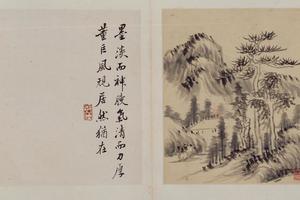 墨淡而神腴氣清而力厚
董巨風規居然猶在